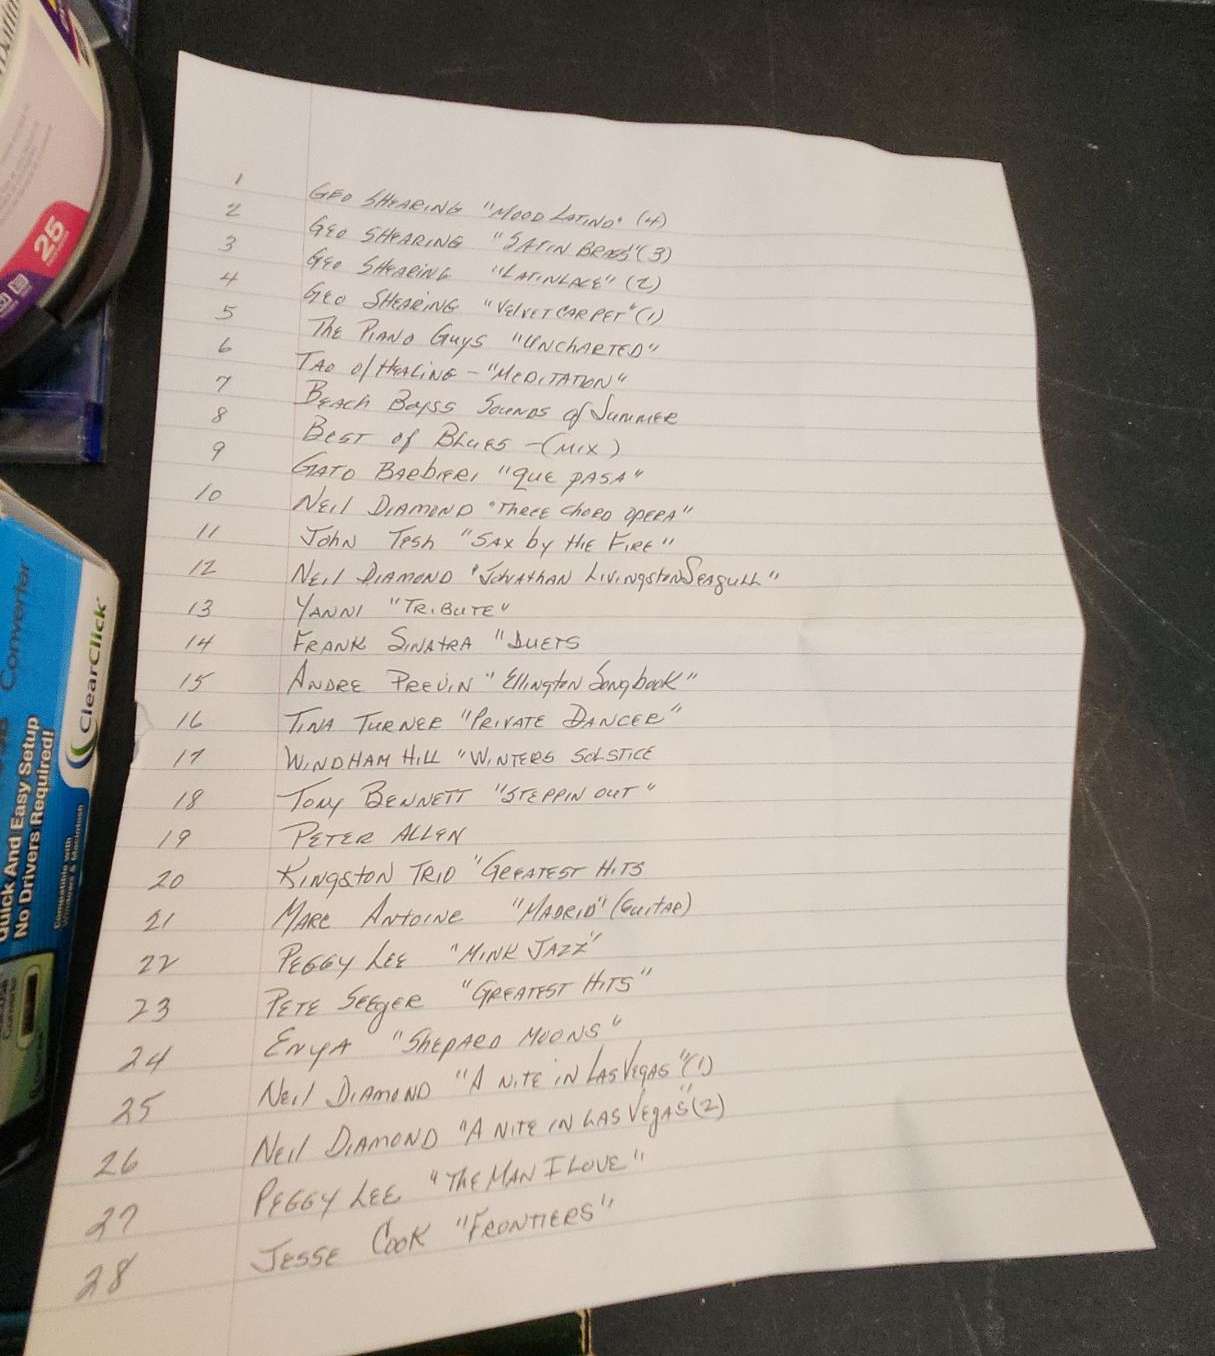 25
Converter
ClearClick
Quick And Easy Setup
No Drivers Required!
Compatible with
Windows & Macintosh
1 GEO SHEARING "MOOD LATINO" (4)
2 GEO SHEARING "SATIN BRASS" (3)
3 GEO SHEARING "LATIN LACE" (2)
4 GEO SHEARING "VELVET CARPET" (1)
5 THE PIANO GUYS "UNCHARTED"
6 TAO of HEALING - "MEDITATION"
7 BEACH BOYSS SOUNDS of SUMMER
8 BEST of BLUES - (MIX)
9 GATO BARBIERI "QUE PASA"
10 NEIL DIAMOND "THREE CHORD OPERA"
11 JOHN TESH "SAX by tHE FIRE"
12 NEIL DIAMOND "JONATHAN LIVINGSTON SEAGULL"
13 YANNI "TRIBUTE"
14 FRANK SINATRA "DUETS
15 ANDRE PREVIN "Ellington Songbook"
16 TINA TURNER "PRIVATE DANCER"
17 WINDHAM HILL "WINTERS SOLSTICE
18 TONY BENNETT "STEPPIN OUT"
19 PETER ALLEN
20 KINGSTON TRIO "GREATEST HITS
21 MARC ANTOINE "MADRID" (GUITAR)
22 PEGGY LEE "MINK JAZZ"
23 PETE SEEGER "GREATEST HITS"
24 ENYA "SHEPARD MOONS"
25 NEIL DIAMOND "A NITE IN LAS VEGAS" (1)
26 NEIL DIAMOND "A NITE IN LAS VEGAS" (2)
27 PEGGY LEE "THE MAN I LOVE"
28 JESSE COOK "FRONTIERS"